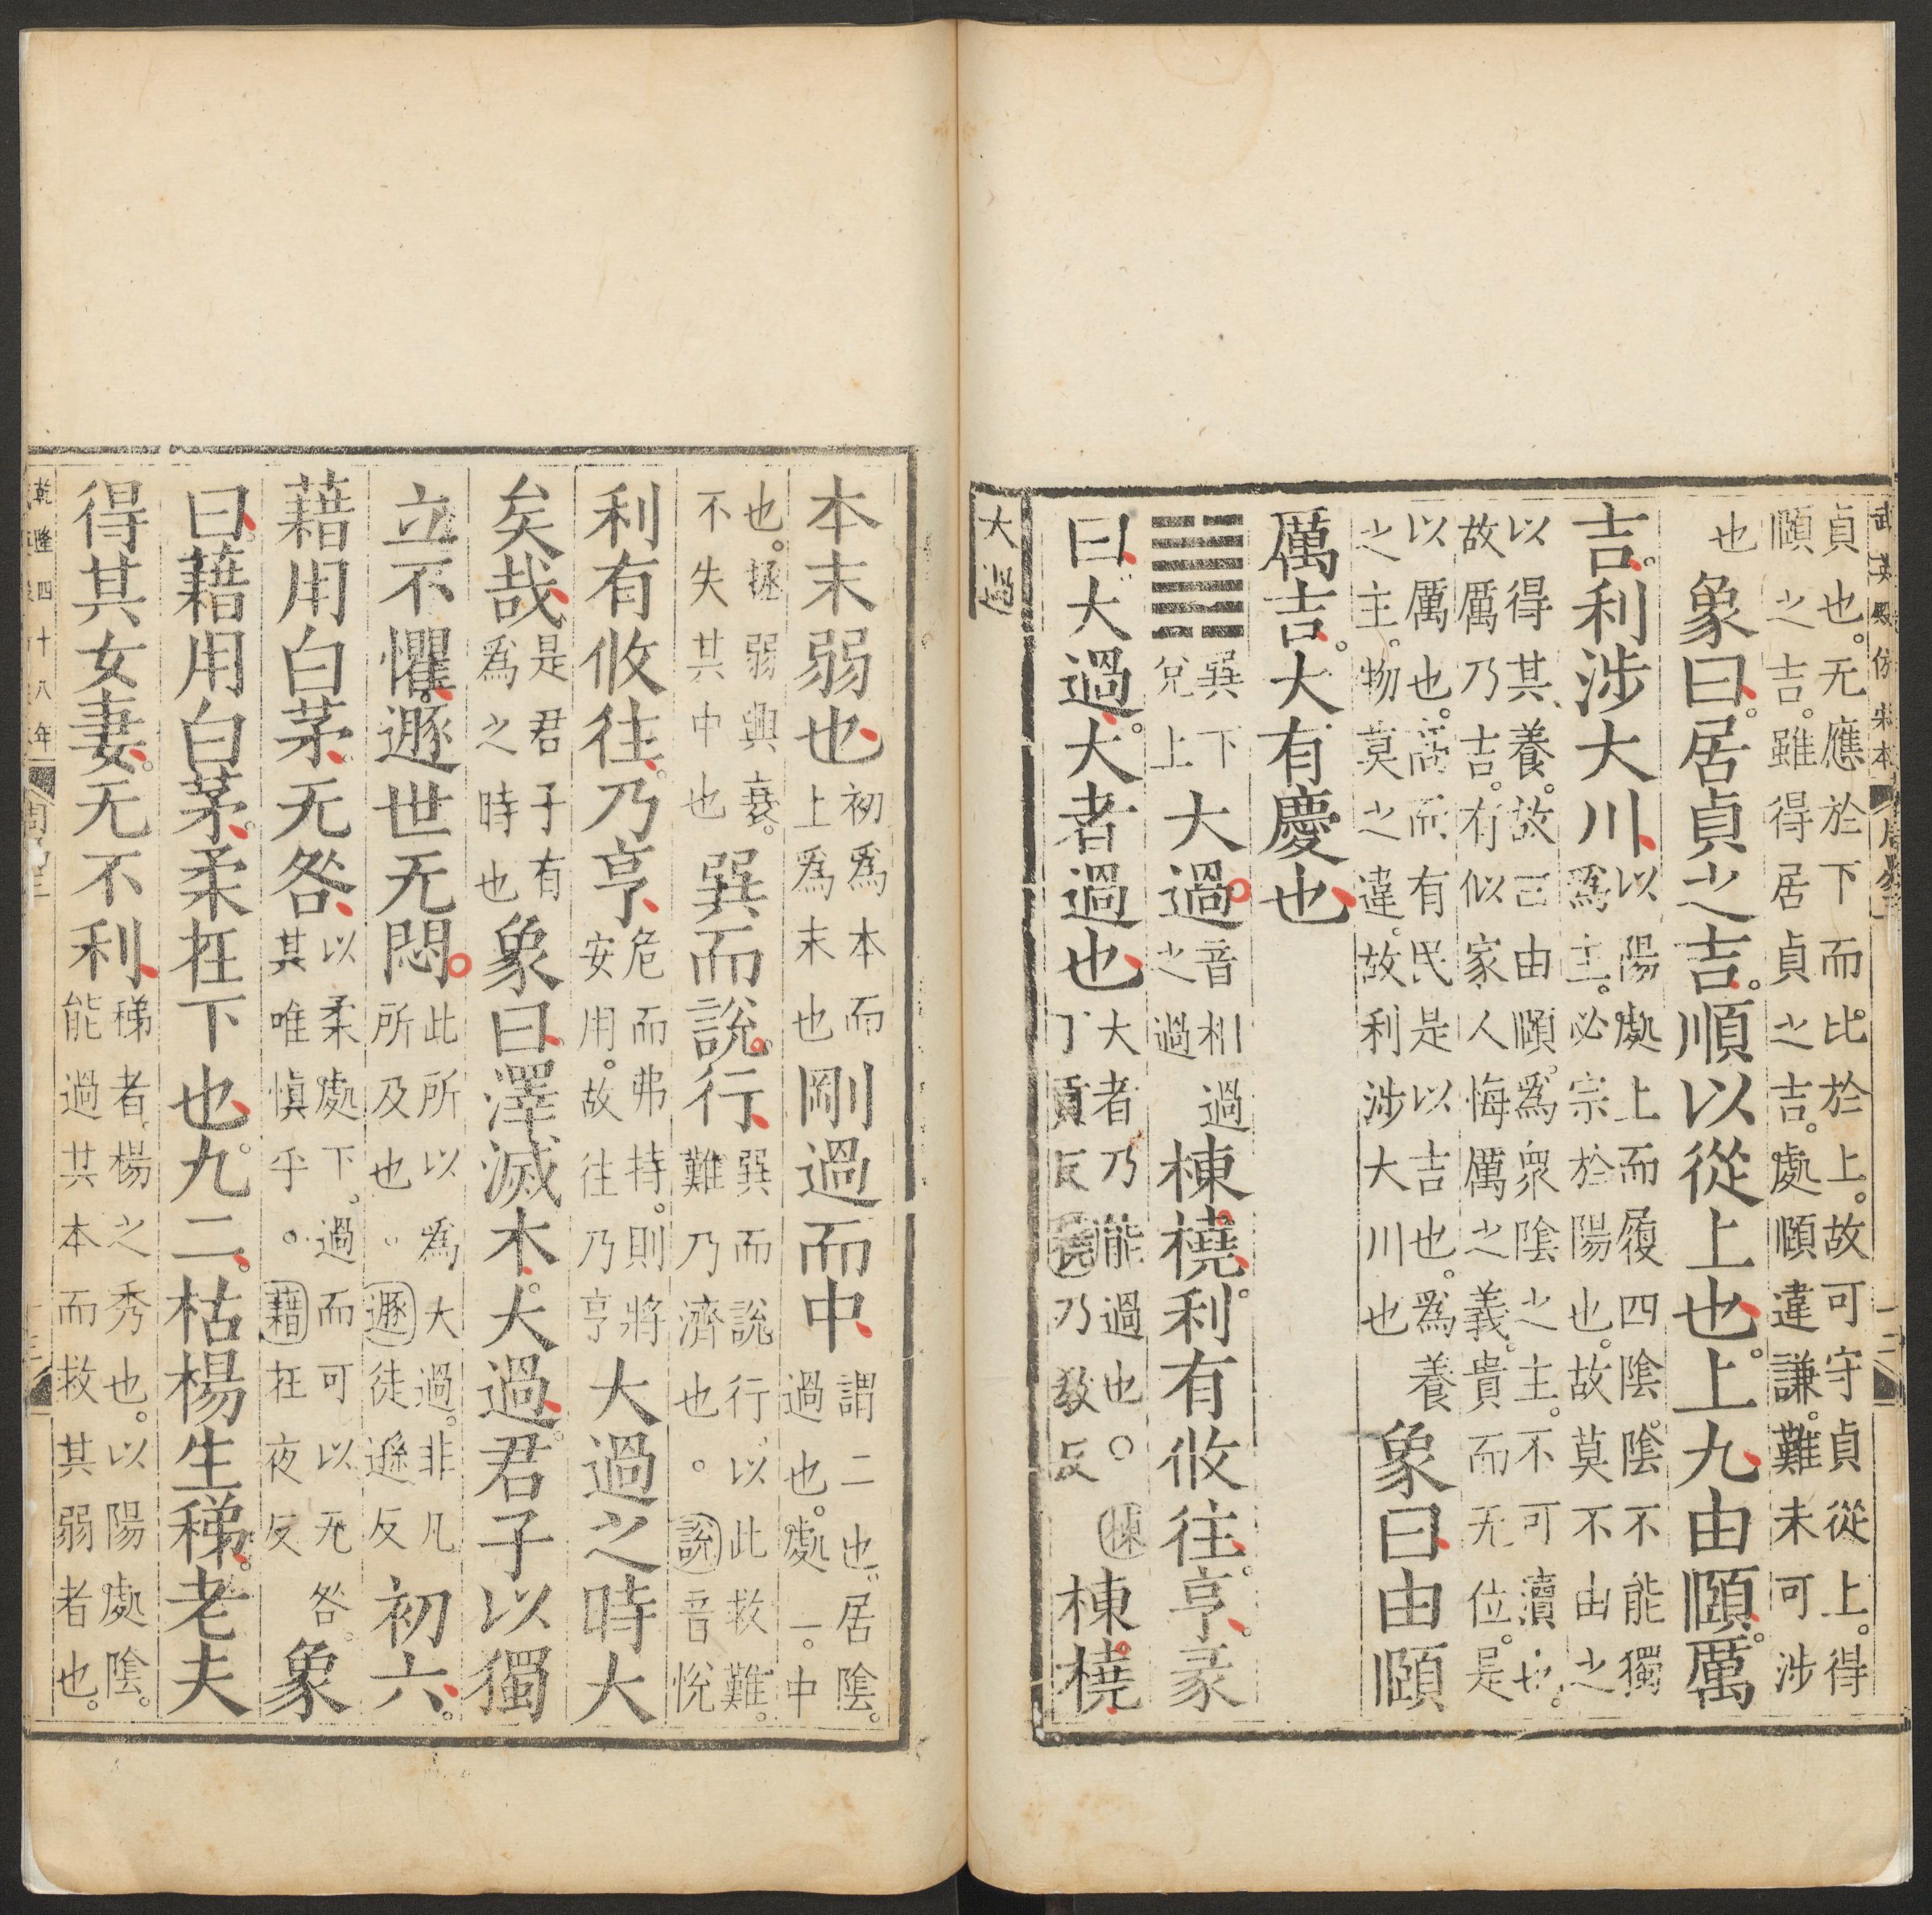 武英殿仿宋本
貞也无應於下而比於上故可守貞從上得
頤之吉雖得居貞之吉處頤違謙難未可涉
也
象曰居貞之吉順以從上也上九由頤厲
吉利涉大川
以陽處上而履四陰陰不能獨
爲主必宗於陽也故莫不由之
以得其養故曰由頤爲衆陰之主不可瀆也
故厲乃吉有似家人悔厲之義貴而无位是
以厲也高而有民是以吉也爲養
之主物莫之違故利涉大川也
象曰由頤
厲吉大有慶也
巽下
兌上
大過
音相過
之過
棟橈利有攸往亨彖
曰大過大者過也
大者乃能過也○棟
丁貢反橈乃教反
棟橈
大過
本末弱也
初爲本而
上爲末也
剛過而中
謂二也居陰
過也處二中
也拯弱興衰
不失其中也
巽而說行
巽而說行以此救難
難乃濟也○說音悅
利有攸往乃亨
危而弗持則將
安用故往乃亨
大過之時大
矣哉
是君子有
爲之時也
象曰澤滅木大過君子以獨
立不懼遯世无悶
此所以爲大過非凡
所及也○遯徒遜反
初六
藉用白茅无咎
以柔處下過而可以无咎
其唯慎乎○藉在夜反
象
曰藉用白茅柔在下也九二枯楊生稊老夫
得其女妻无不利
稊者楊之秀也以陽處陰
能過其本而救其弱者也
乾隆四十八年